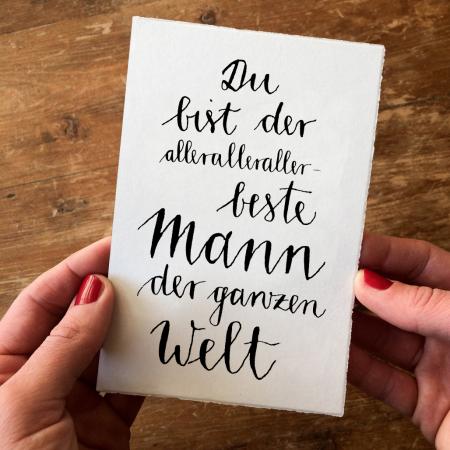 Du
bist der
alleralleraller-
beste
Mann
der ganzen
Welt